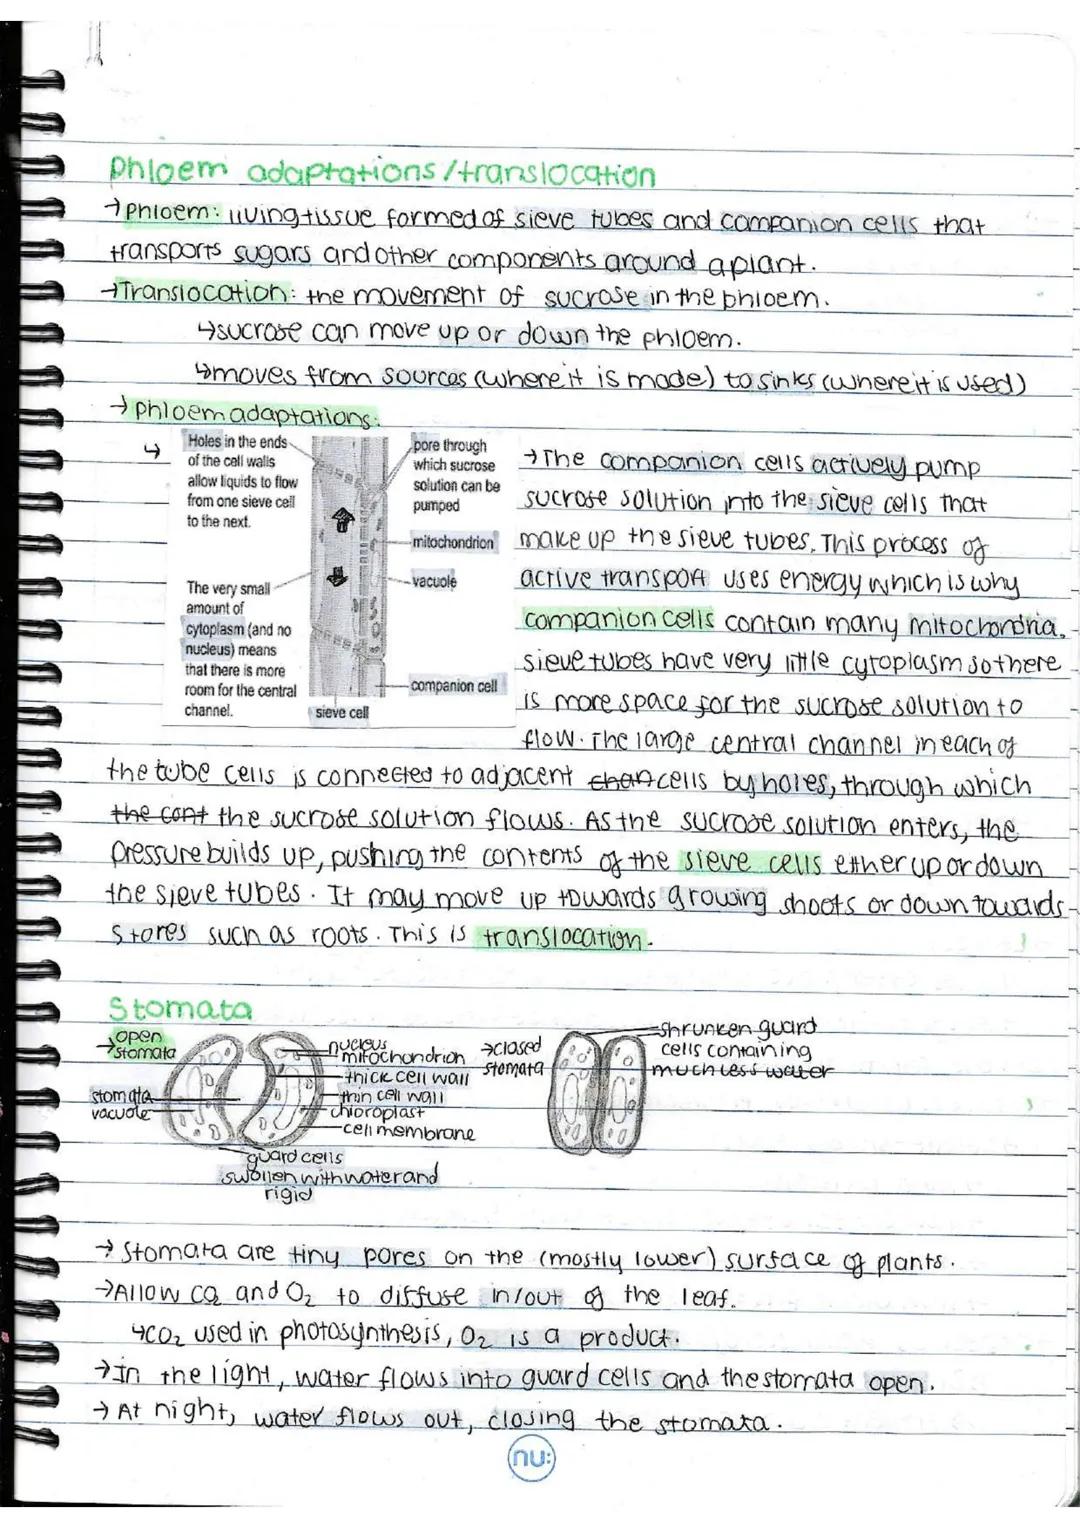 Phloem adaptations/translocation
→Phloem: living tissue formed of sieve tubes and companion cells that
transports sugars and other components around a plant.
→Translocation: the movement of sucrose in the phloem.
↳sucrose can move up or down the phloem.
↳moves from sources (where it is made) to sinks (where it is used)
→Phloem adaptations:
↳
Holes in the ends
of the cell walls
allow liquids to flow
from one sieve cell
to the next.
The very small
amount of
cytoplasm (and no
nucleus) means
that there is more
room for the central
channel.
sieve cell
pore through
which sucrose
solution can be
pumped
mitochondrion
vacuole
companion cell
→The companion cells actively pump
sucrose solution into the sieve cells that
make up the sieve tubes. This process of
active transport uses energy which is why
companion cells contain many mitochondria.
sieve tubes have very little cytoplasm so there
is more space for the sucrose solution to
flow. The large central channel in each of
the tube cells is connected to adjacent chan cells by holes, through which
the cont the sucrose solution flows. As the sucrose solution enters, the
pressure builds up, pushing the contents of the sieve cells either up or down
the sieve tubes. It may move up towards growing shoots or down towards
stores such as roots. This is translocation.
Stomata
→open
stomata
stomata
vacuole
nucleus
mitochondrion
thick cell wall
thin cell wall
chloroplast
cell membrane
guard cells
swollen with water and
rigid
→closed
stomata
shrunken guard
cells containing
much less water
→Stomata are tiny pores on the (mostly lower) surface of plants.
→Allow CO₂ and O₂ to diffuse in/out of the leaf.
↳CO₂ used in photosynthesis, O₂ is a product.
→In the light, water flows into guard cells and the stomata open.
→At night, water flows out, closing the stomata.
nu: